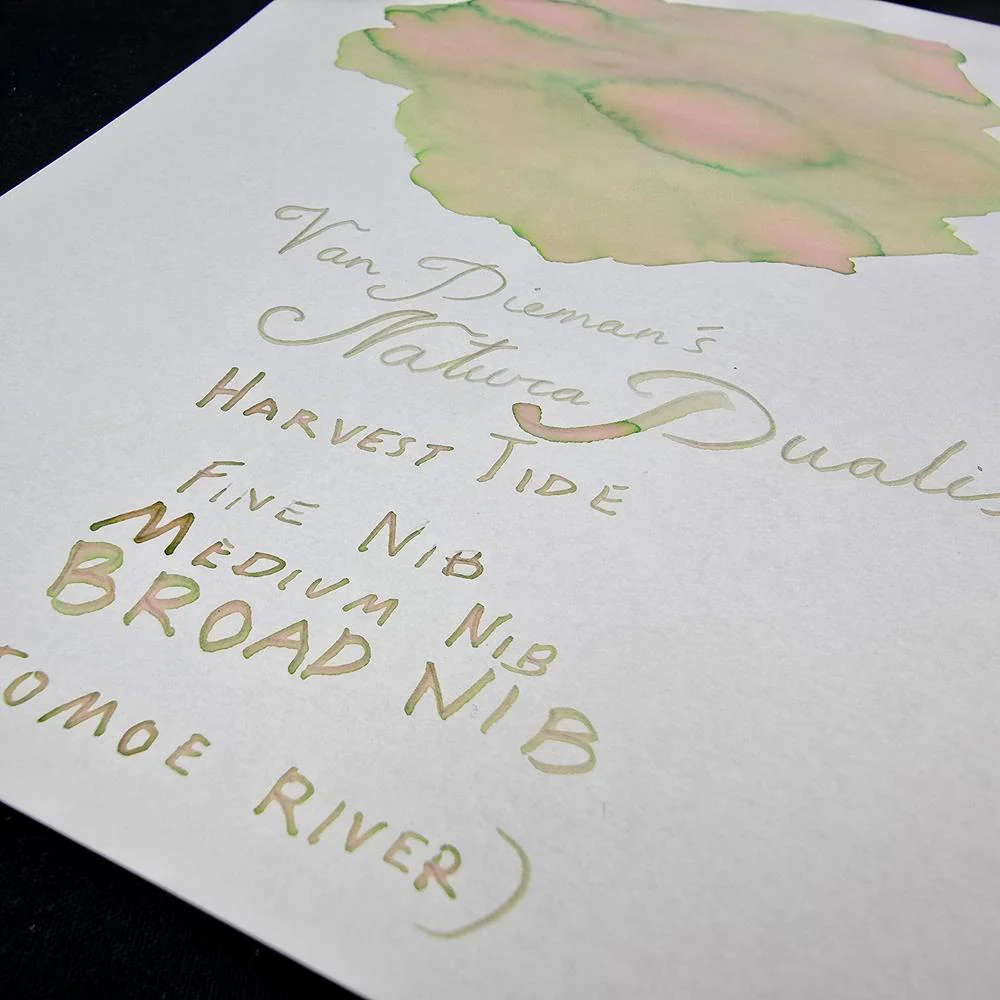 Van Dieman's
Natura Dualis
HARVEST TIDE
FINE NIB
MEDIUM NIB
BROAD NIB
TOMOE RIVER)